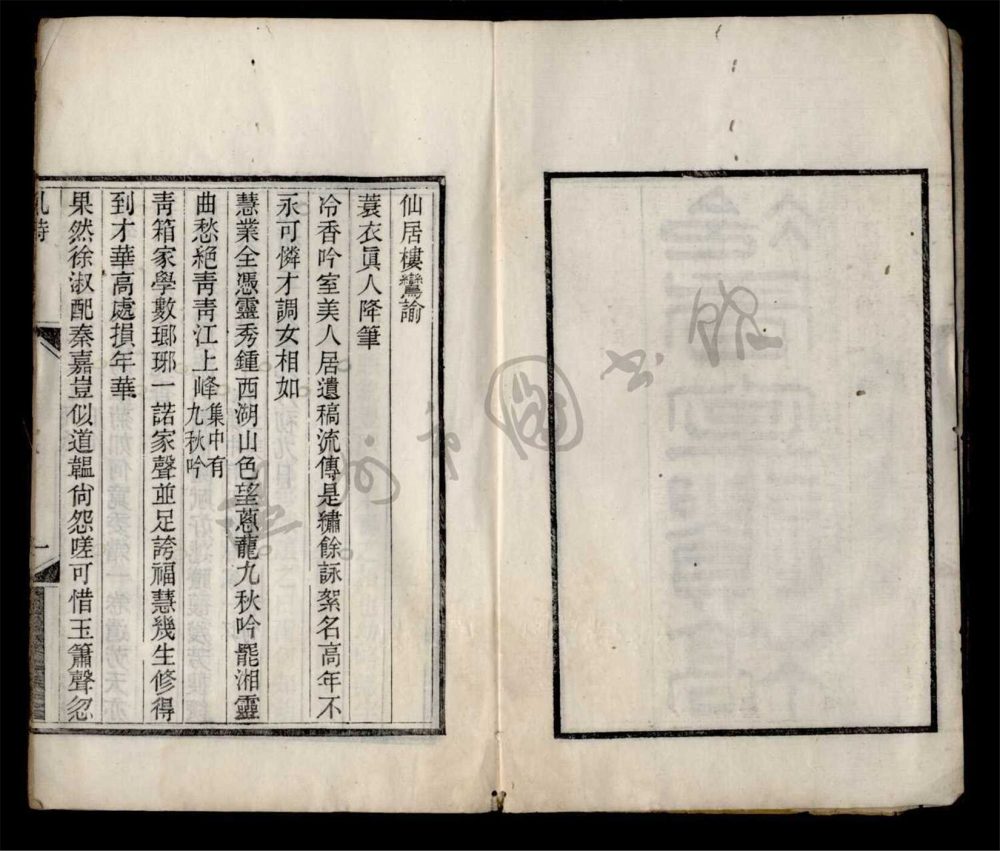 仙居樓鸞諭
蓑衣眞人降筆
冷香吟室美人居遺稿流傳是繡餘詠絮名高年不
永可憐才調女相如
慧業全憑靈秀鍾西湖山色望蔥蘢九秋吟罷湘靈
曲愁絕靑靑江上峰集中有九秋吟
靑箱家學數瑯琊一諾家聲並足誇福慧幾生修得
到才華高處損年華
果然徐淑配秦嘉豈似道韞尙怨嗟可惜玉簫聲忽
乩詩
一
圖書館